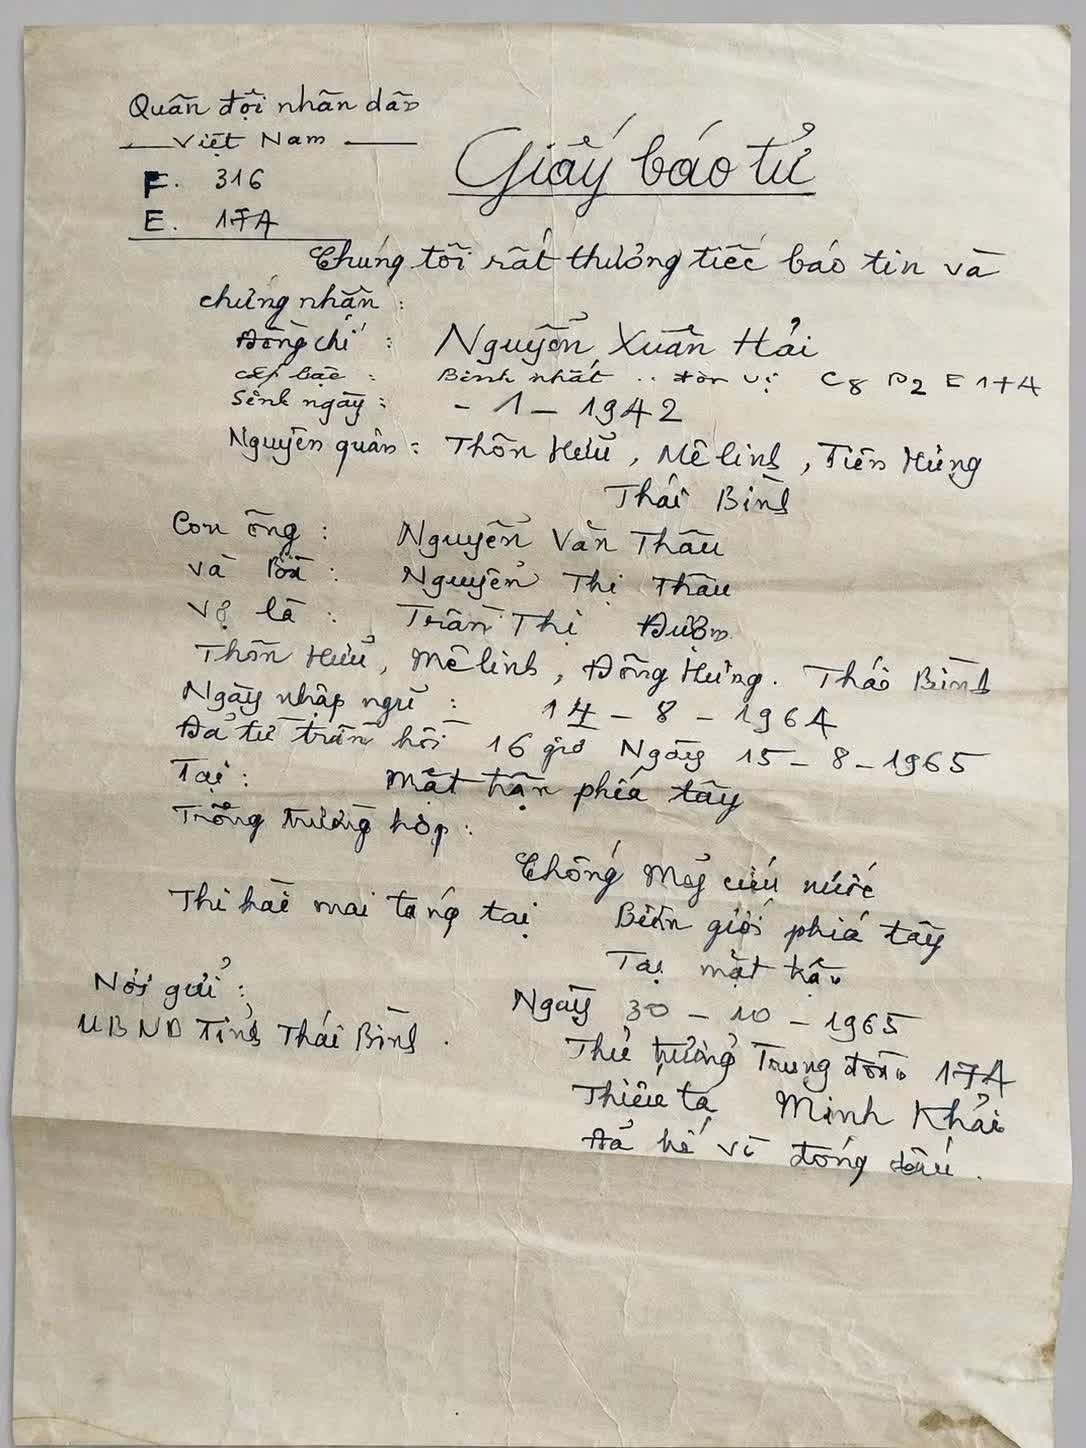 Quân đội nhân dân
Việt Nam
F. 316
E. 17A
Giấy báo tử
Chúng tôi rất thương tiếc báo tin và
chứng nhận :
Đồng chí : Nguyễn Xuân Hải
cấp bậc : Binh nhất .. đơn vị C8 D2 E 17A
Sinh ngày : - 1 - 1942
Nguyên quán : Thôn Hữu, Mê linh, Tiên Hưng
Thái Bình
Con ông : Nguyễn Văn Thâu
và Bà : Nguyễn Thị Thâu
Vợ là : Trần Thị Đượm
Thôn Hữu, Mê linh, Đông Hưng. Thái Bình
Ngày nhập ngũ : 14 - 8 - 1964
Đã từ trần hồi 16 giờ Ngày 15 - 8 - 1965
Tại : Mặt trận phía tây
Trong trường hợp :
Chống Mỹ cứu nước
Thi hài mai táng tại Biên giới phía tây
Tại mặt trận
Nơi gửi :
Ngày 30 - 10 - 1965
UBND Tỉnh Thái Bình .
Thủ trưởng Trung đoàn 17A
Thiếu tá Minh Khải
Đã ký và đóng dấu .